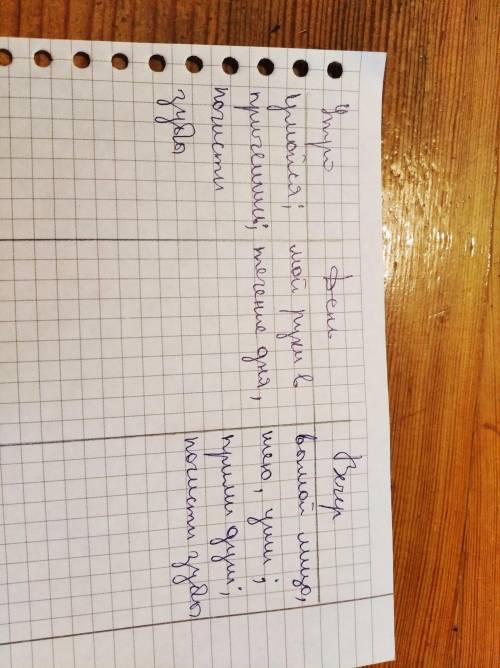 Утро День Вечер
умойся; мой руки в вымой лицо,
причешись; течение дня, шею, уши;
почисти прими душ;
зубы почисти зубы